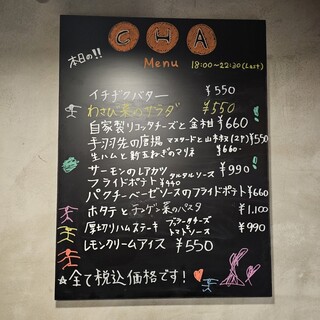 CHA
本日の!!
Menu
18:00~22:30(Last)
イチヂクバター ¥550
わさび菜のサラダ ¥550
自家製リコッタチーズと金柑 ¥660
手羽先の唐揚 マスタードと山本椒(2P) ¥550
生ハムと新玉ねぎのマリネ ¥660
サーモンのレアカツ タルタルソース ¥990
フライドポテト ¥440
パクチーベーゼソースのフライドポテト ¥660
ホタテとチンゲン菜のパスタ ¥1.100
厚切りハムステーキ ブラータチーズとトマトソース ¥990
レモンクリームアイス ¥550
☆全て税込価格です!